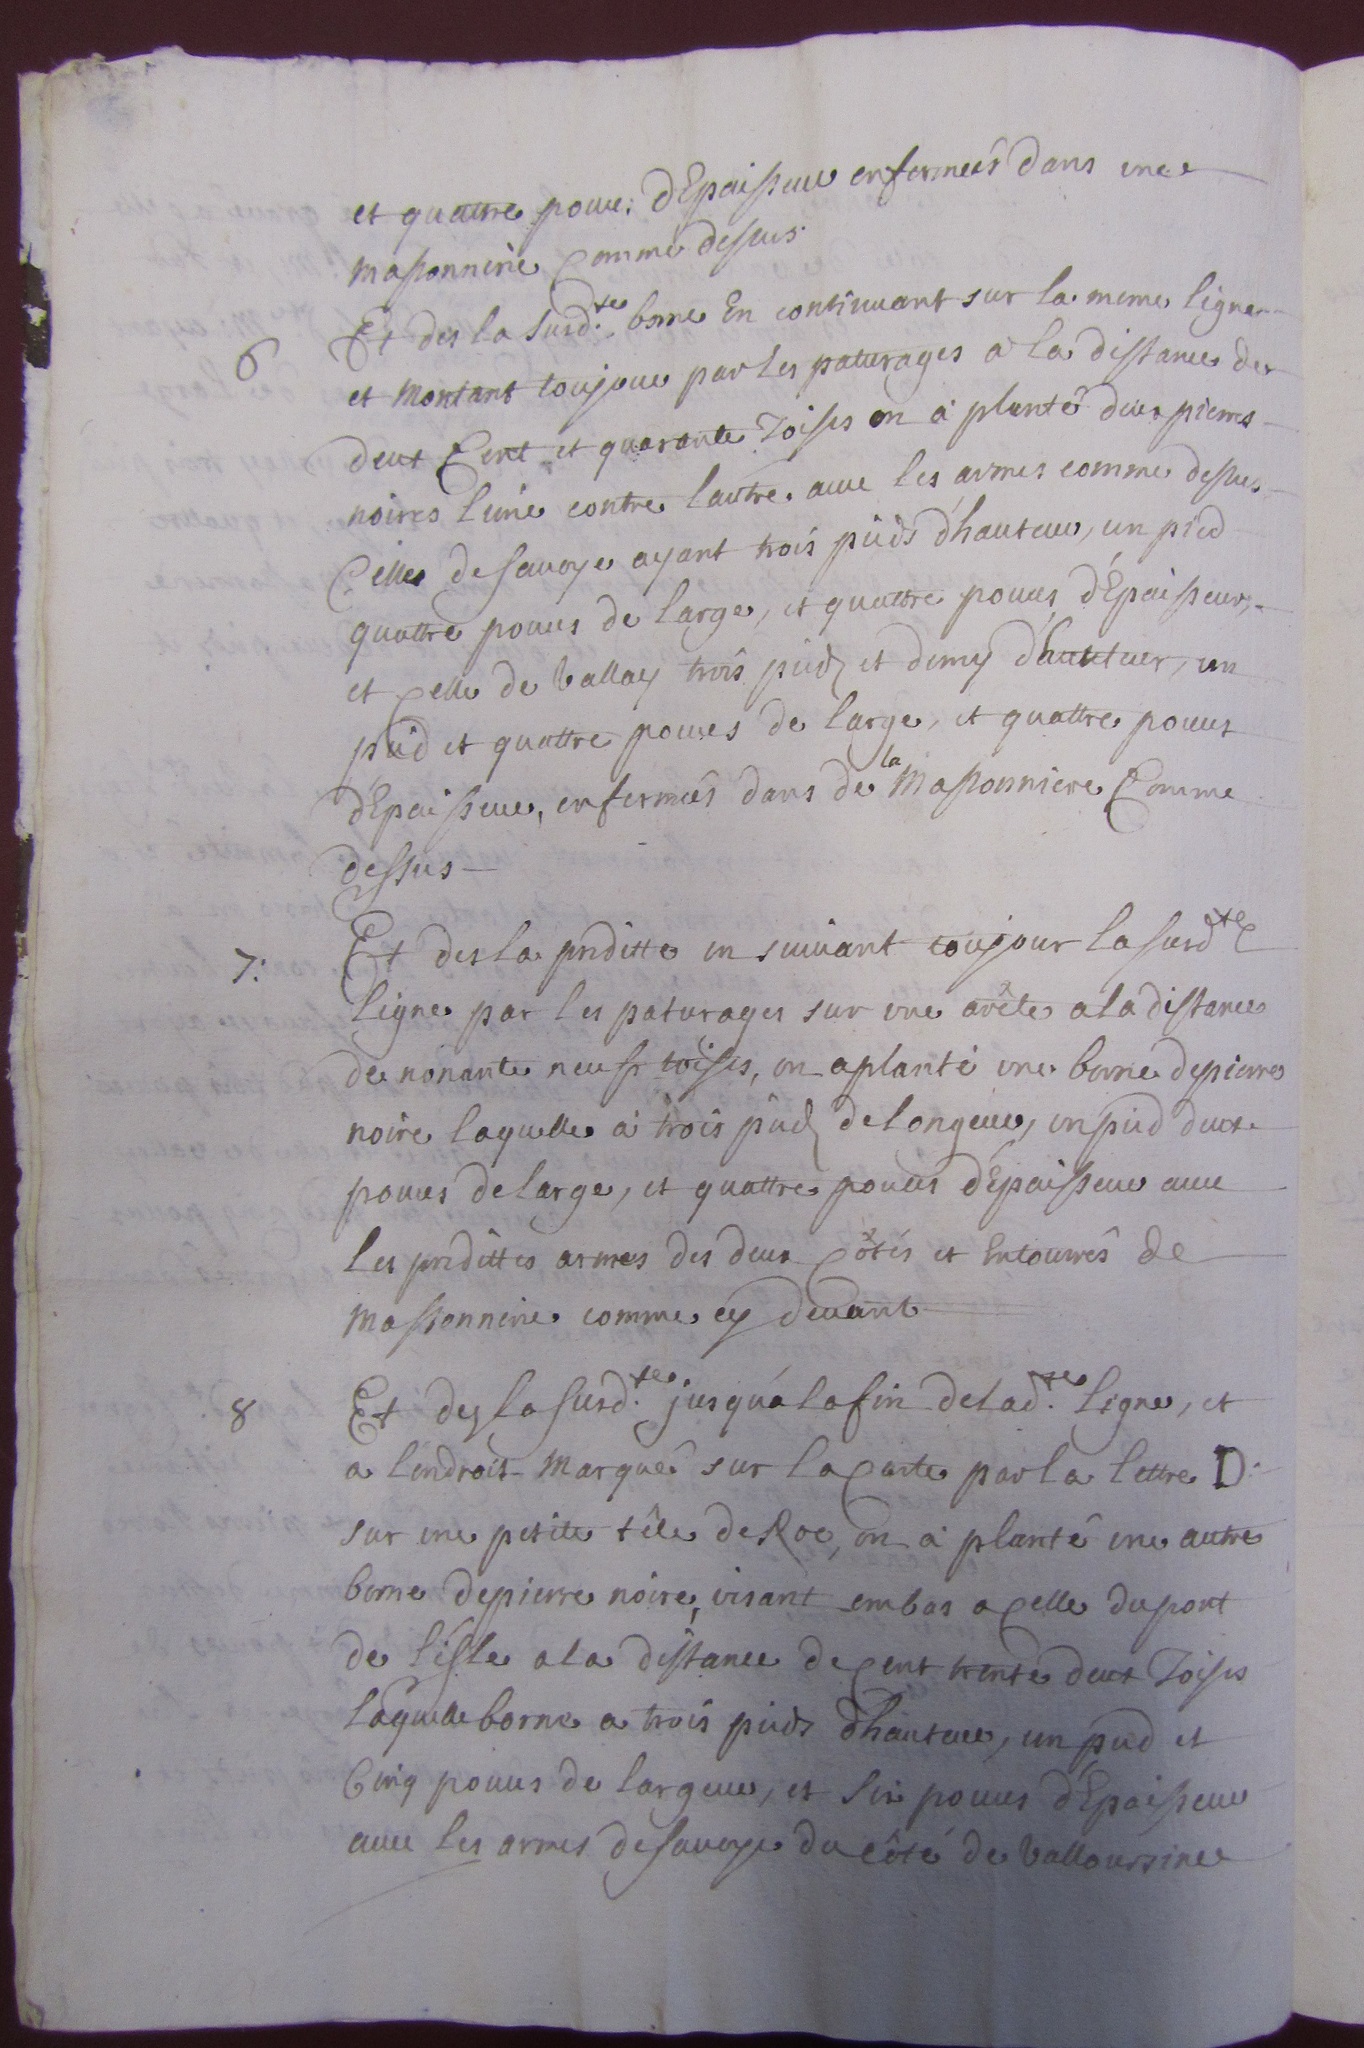 et quattre pouc: d'Epaisseur enfermées dans une
Massonnerie Comme dessus.
6 Et des la susd.te borne En continuant sur la meme ligne
et Montant toujour par les paturages a la distance de
deux Cent et quarante Toises on à planté deux pierres
noires l'une contre l'autre. avec les armes comme dessus
Celle de Savoye ayant trois pieds d'hauteur, un pied
quattre pouces de large, et quattre pouces d'Epaisseur,
et Celle de Vallay trois pieds et demy d'hauteur, un
pied et quattre pouces de large, et quattre pouces
d'Epaisseur, enfermées dans de la Massonnerie Comme
dessus
7. Et des la preditte en suivant toujour la susd.te
ligne par les paturages sur une arête a la distance
de nonante neuf toises, on a planté une borne de pierre
noire laquelle a trois pieds de longeur, un pied deux
pouces de large, et quattre pouces d'Epaisseur avec
les predittes armes des deux Côtés et Entourrés de
Massonnerie comme cy devant
8 Et dez la susd.te jusqu'a la fin de lad.te ligne, et
a l'endroit Marqué sur la Carte par la lettre D.
sur une petite tête de Roc, on à planté une autre
borne de pierre noire, visant embas a Celle du pont
de l'isle a la distance de Cent trente deux Toises
laquelle borne a trois pieds d'hauteur, un pied et
Cinq pouces de largeur, et six pouces d'Epaisseur
avec les armes de Savoye du côté de Valloursine